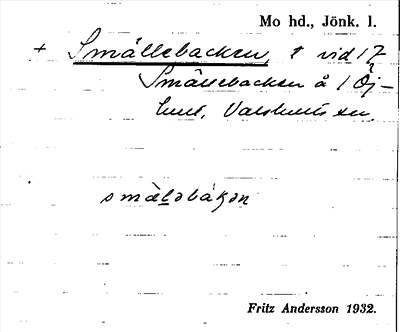 Mo hd., Jönk. l.
+ Smällebacken, t vid 1 7
Smällebacken å 1 Öj-
hult, Valshults sn.
smäləbákən
Fritz Andersson 1932.